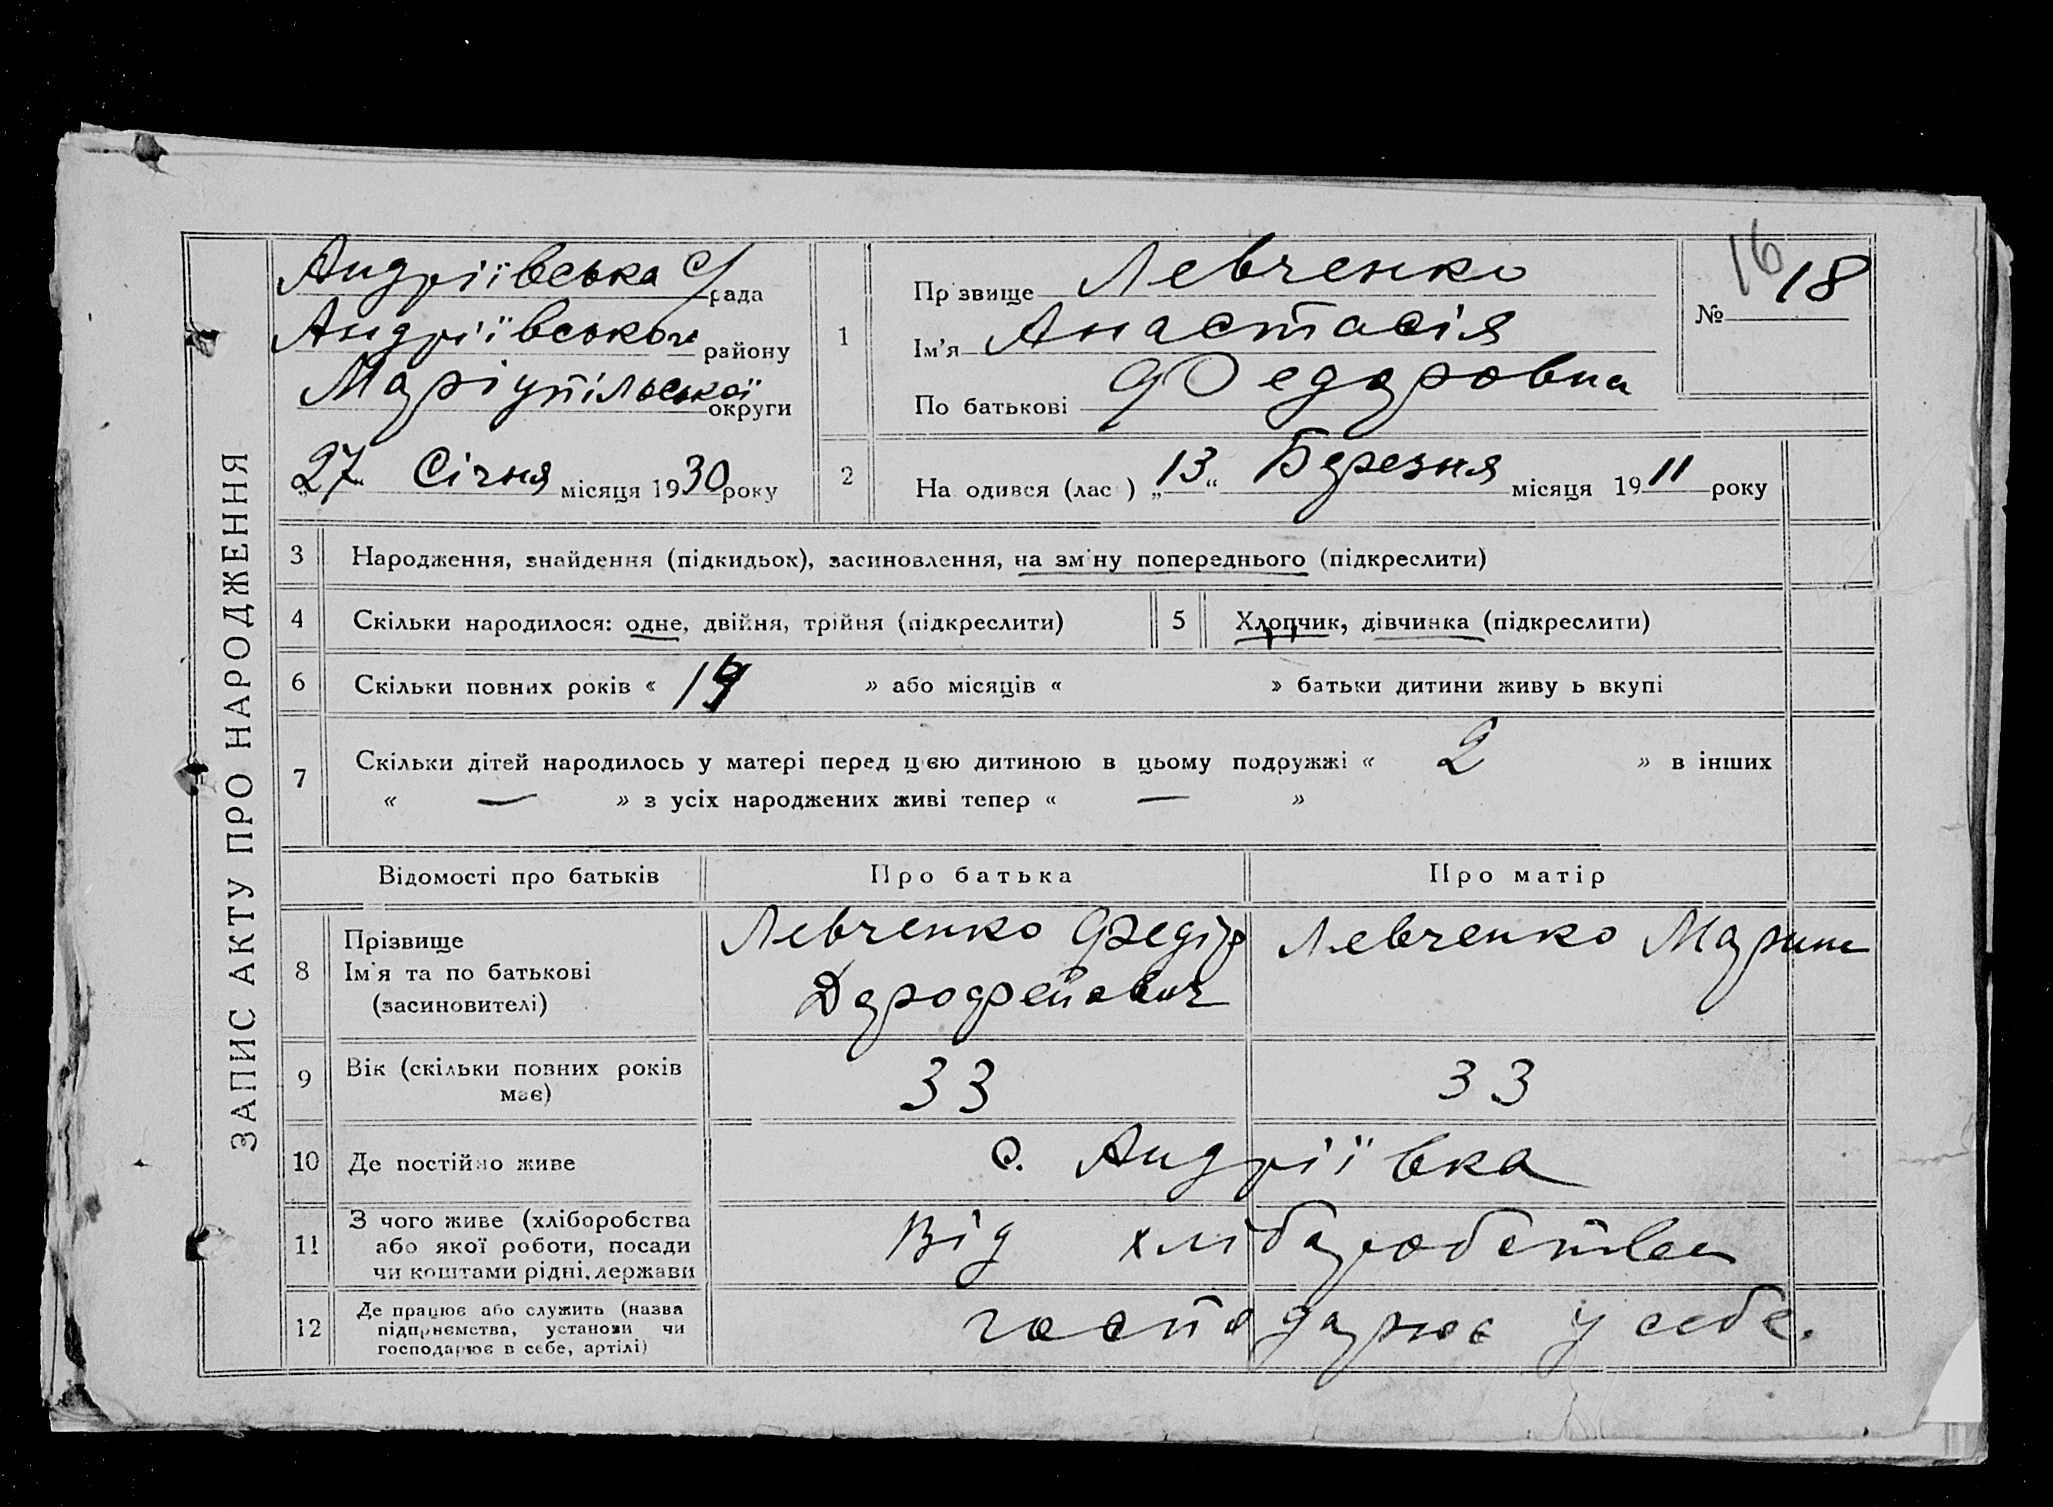 ЗАПИС АКТУ ПРО НАРОДЖЕННЯ
Андріївська с/рада
Андріївського району
Маріупільської округи
„27“ Січня місяця 1930 року
1
Пр звище Левченко
Ім’я Анастасія
По батькові Федоровна
16
№ 18
2
На одився (лас ) „13“ Березня місяця 1911 року
3 Народження, знайдення (підкидьок), засиновлення, на зм ну попереднього (підкреслити)
4 Скільки народилося: одне, двійня, трійня (підкреслити)
5 Хлопчик, дівчинка (підкреслити)
6 Скільки повних років « 19 » або місяців « » батьки дитини живу ь вкупі
7 Скільки дітей народилось у матері перед цією дитиною в цьому подружжі « 2 » в інших
« — » з усіх народжених живі тепер « — »
Відомості про батьків Про батька Про матір
8 Прізвище
Ім’я та по батькові
(засиновителі)
Левченко Федір
Дорофейович
Левченко Марина
9 Вік (скільки повних років
має)
33 33
10 Де постійно живе с. Андріївка
11 З чого живе (хліборобства
або якої роботи, посади
чи коштами рідні, держави
Від хліборобства
12 Де працює або служить (назва
підприємства, установи чи
господарює в себе, артілі)
господарює у себе.